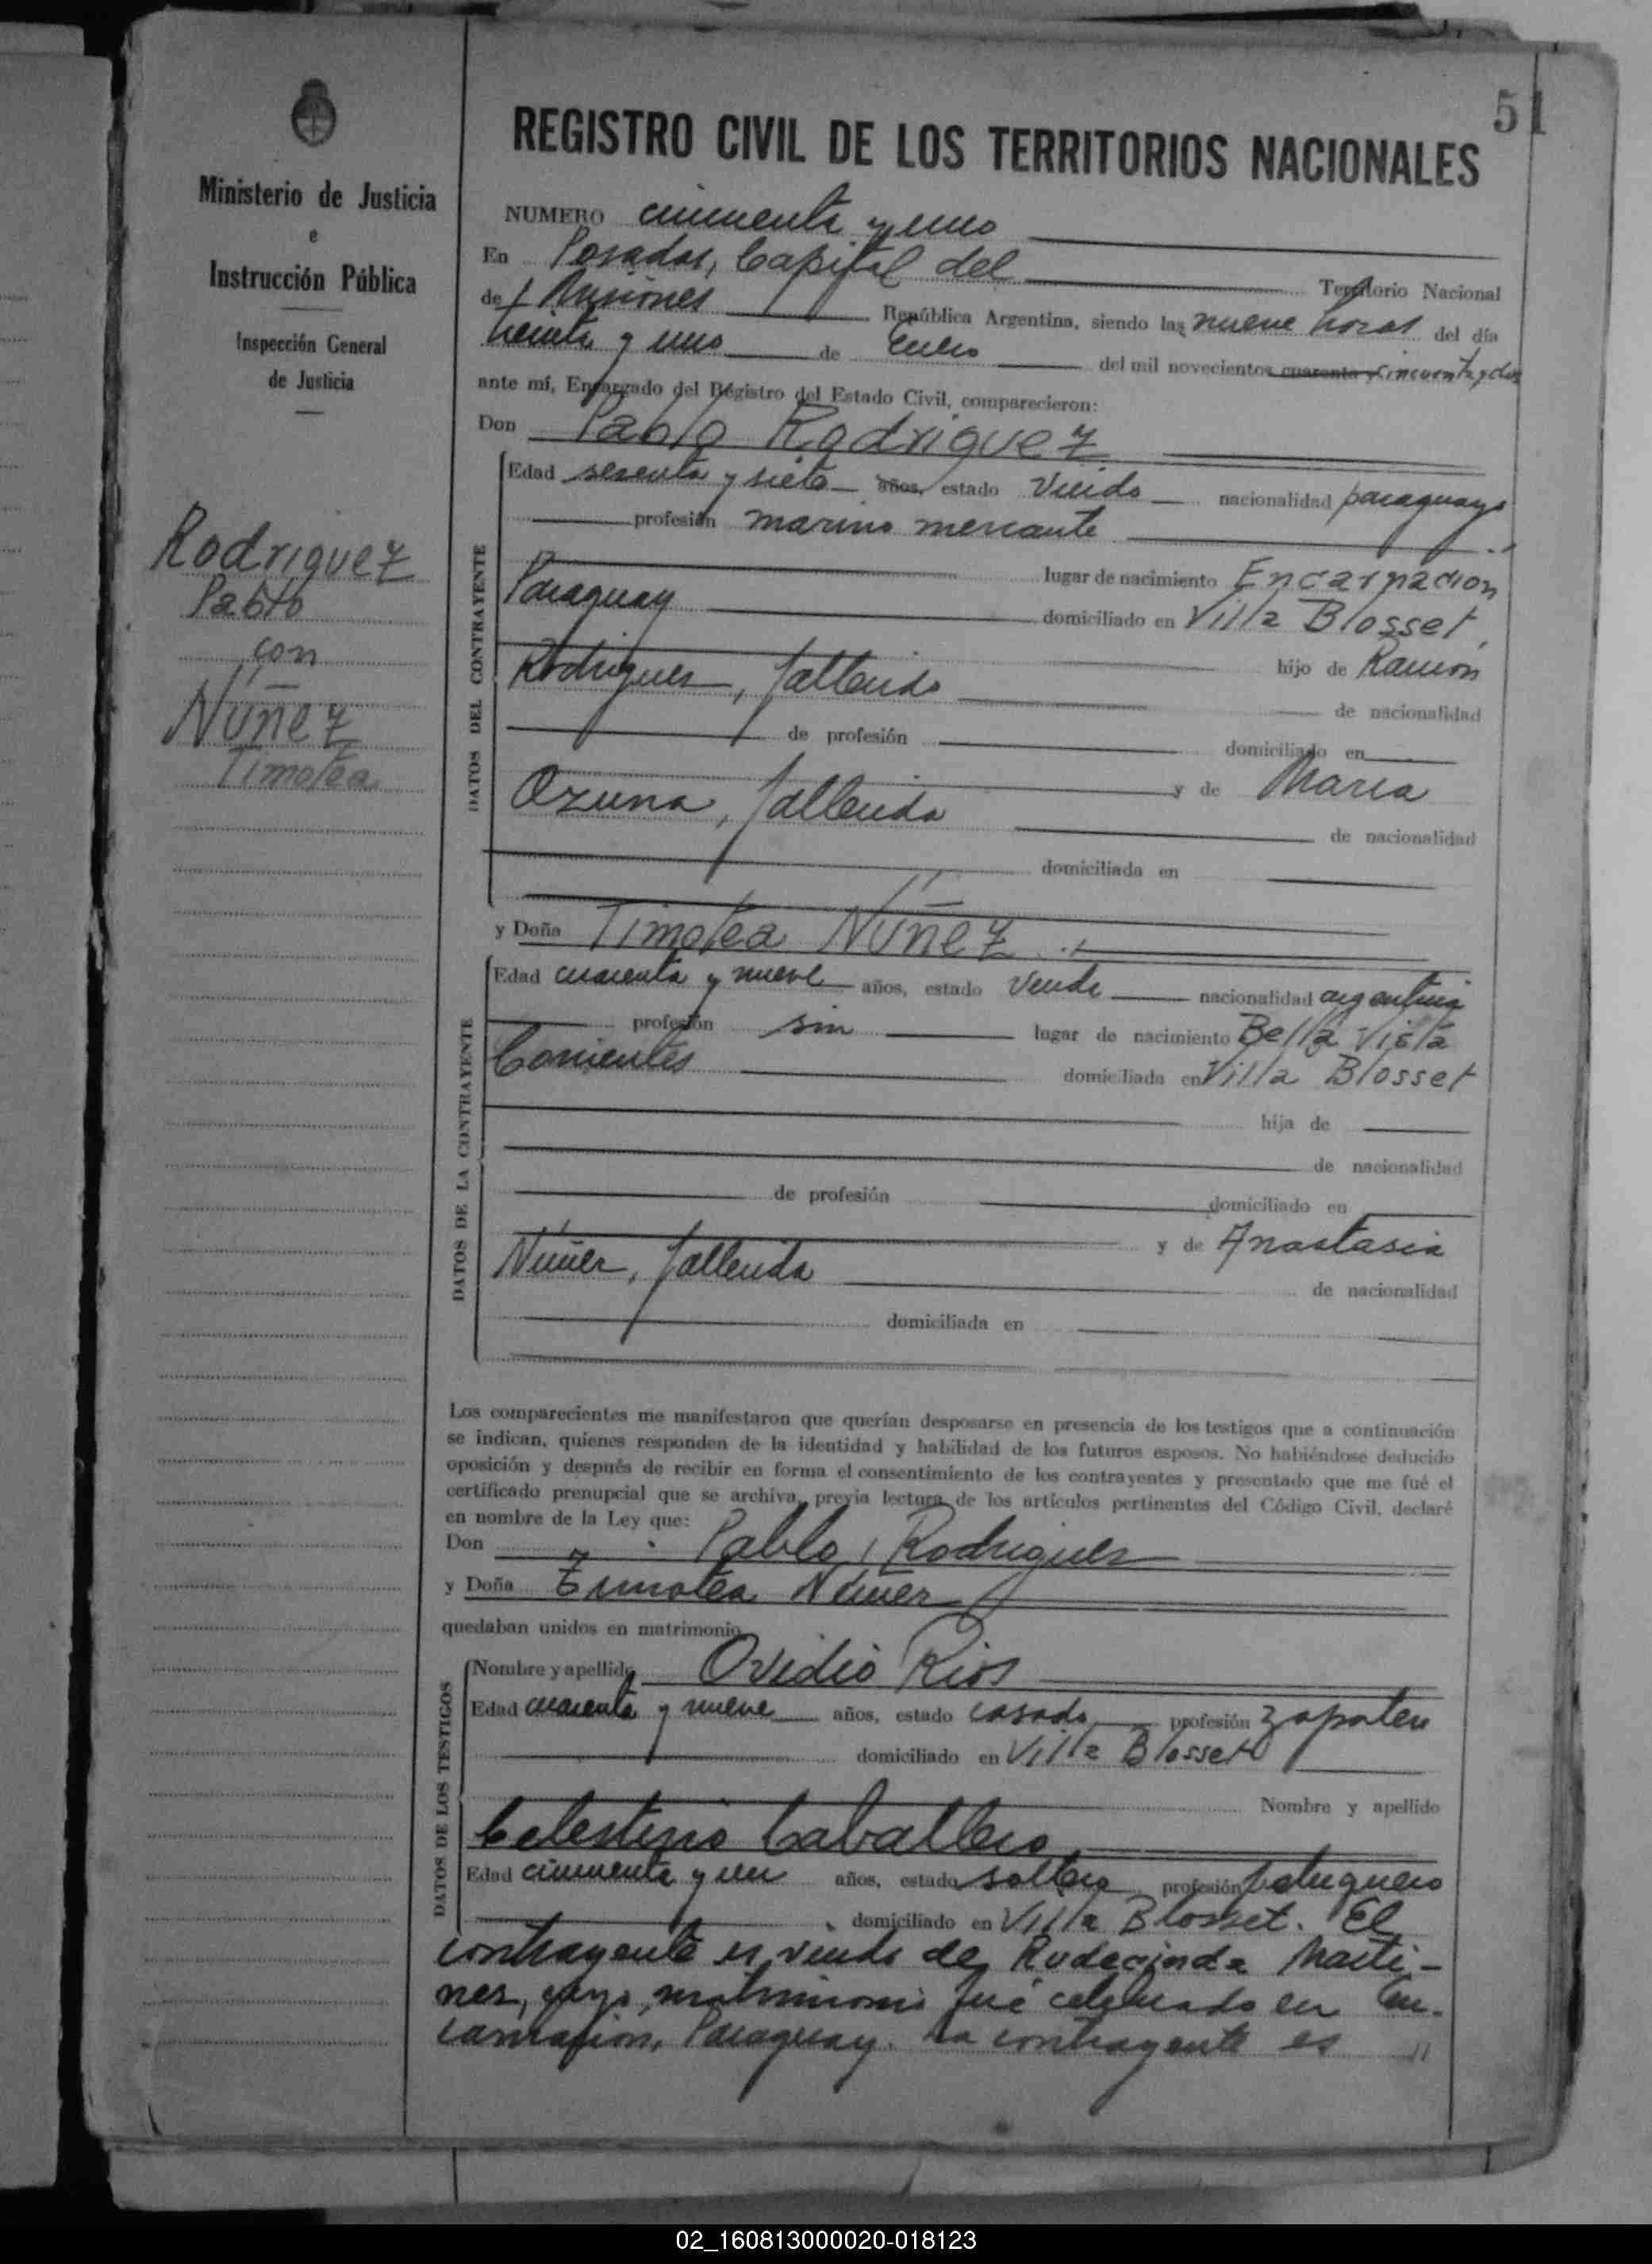 51
Ministerio de Justicia
e
Instrucción Pública
Inspección General
de Justicia
Rodriguez
Pablo
con
Núñez
Timotea
REGISTRO CIVIL DE LOS TERRITORIOS NACIONALES
NUMERO cincuenta y uno
En Posadas, Capital del Territorio Nacional
de Misiones República Argentina, siendo las nueve horas del día
treinta y uno de Enero del mil novecientos cuarenta y cincuenta y dos
ante mí, Encargado del Régistro del Estado Civil, comparecieron:
Don Pablo Rodriguez
DATOS DEL CONTRAYENTE
Edad sesenta y siete años, estado Viudo nacionalidad paraguayo
profesión marino mercante
lugar de nacimiento Encarnacion
Paraguay domiciliado en Villa Blosset,
hijo de Ramón
Rodriguez, fallecido de nacionalidad
de profesión domiciliado en
y de Maria
Ozuna, fallecida de nacionalidad
domiciliada en
y Doña Timotea Núñez
DATOS DE LA CONTRAYENTE
Edad cuarenta y nueve años, estado Viuda nacionalidad argentina
profesión sin lugar de nacimiento Bella Vista
Corrientes domiciliada en Villa Blosset
hija de
de nacionalidad
de profesión domiciliado en
y de Anastasia
Núñez, fallecida de nacionalidad
domiciliada en
Los comparecientes me manifestaron que querían desposarse en presencia de los testigos que a continuación
se indican, quienes responden de la identidad y habilidad de los futuros esposos. No habiéndose deducido
oposición y después de recibir en forma el consentimiento de los contrayentes y presentado que me fué el
certificado prenupcial que se archiva, previa lectura de los artículos pertinentes del Código Civil, declaré
en nombre de la Ley que:
Don Pablo Rodriguez
y Doña Timotea Núñez
quedaban unidos en matrimonio
DATOS DE LOS TESTIGOS
Nombre y apellido Ovidio Rios
Edad cuarenta y nueve años, estado casado profesión zapatero
domiciliado en Villa Blosset
Nombre y apellido
Celestino Caballero
Edad cincuenta y un años, estado soltero profesión peluquero
domiciliado en Villa Blosset. El
contrayente es viudo de Rudecinda Marti-
nez, cuyo matrimonio fué celebrado en En-
carnacion, Paraguay. La contrayente es //
02_160813000020-018123